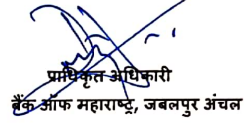 प्राधिकृत अधिकारी
बैंक ऑफ महाराष्ट्र, जबलपुर अंचल